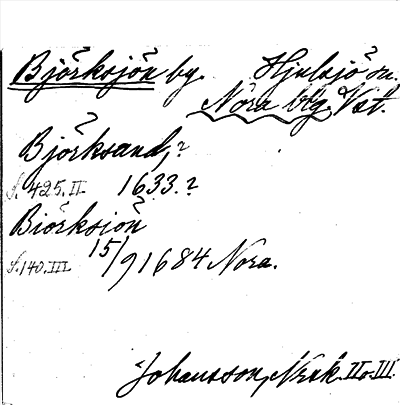 Björksjön by. Hjulsjö sn.
Nora bbg. Väst.
Björksand,?
s. 425. II. 1633.?
Biörksiön
s. 140. III. 15/9 1684 Nora.
Johansson, Nerik. II o. III.